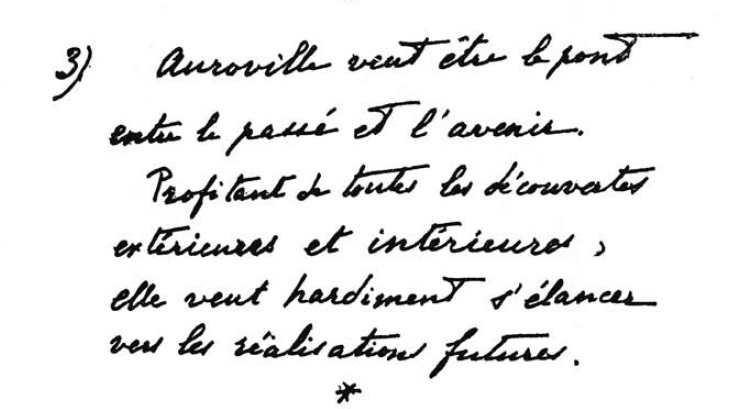 3) Auroville veut être le pont
entre le passé et l'avenir.
Profitant de toutes les découvertes
extérieures et intérieures,
elle veut hardiment s'élancer
vers les réalisations futures.
*